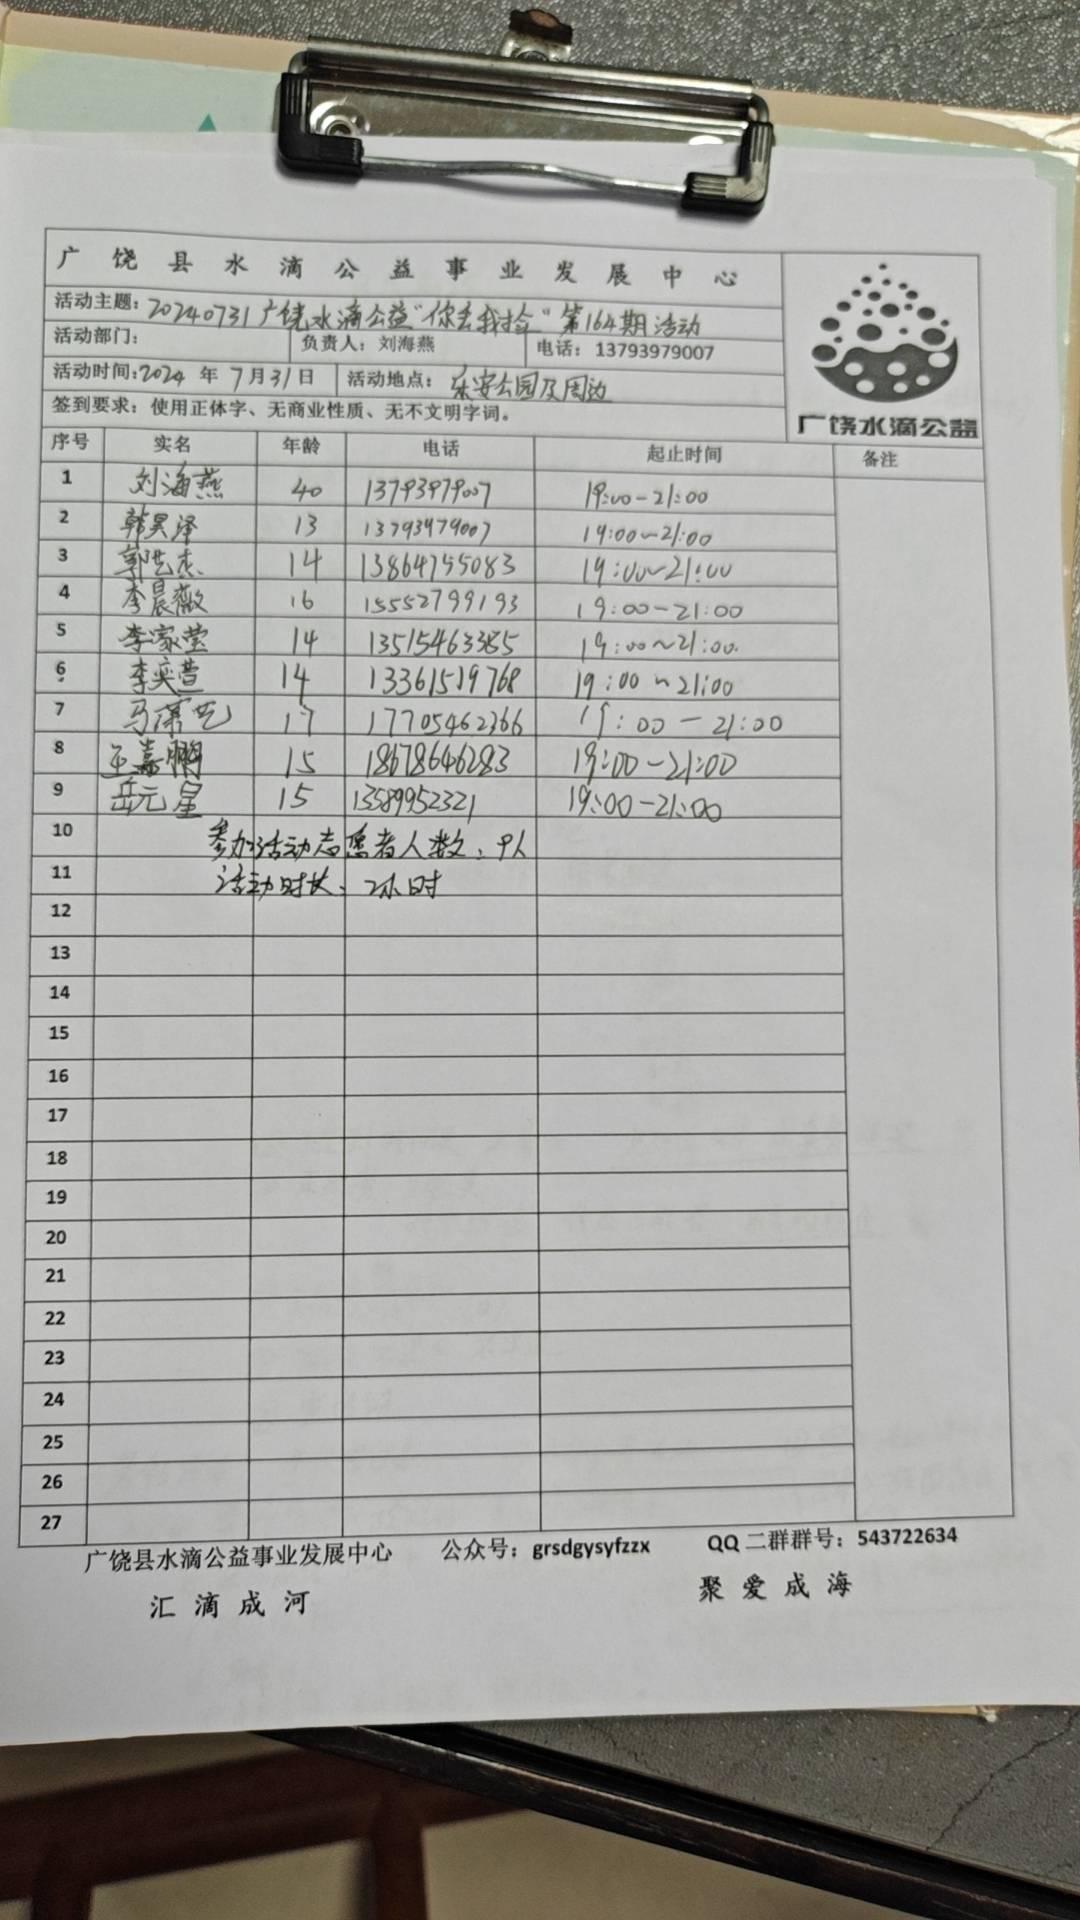 广饶县水滴公益事业发展中心
活动主题：20240731广饶水滴公益"你丢我捡"第164期活动
活动部门： 负责人：刘海燕 电话：13793979007
活动时间：2024 年 7月31日 活动地点：乐安公园及周边
签到要求：使用正体字、无商业性质、无不文明字词。
广饶水滴公益
序号 实名 年龄 电话 起止时间 备注
1 刘海燕 40 13793979007 19:00-21:00
2 韩昊泽 13 13793979007 19:00~21:00
3 郭艺杰 14 13864755083 19:00~21:00
4 李晨薇 16 15552799193 19:00-21:00
5 李家莹 14 13515463385 19:00~21:00.
6 李奕萱 14 13361519768 19:00~21:00
7 马 艺 17 17705462366 19:00-21:00
8 王嘉鹏 15 18678646283 19:00-21:00
9 岳元星 15 13589952321 19:00-21:00
10 参加活动志愿者人数：9人
11 活动时长：2小时
12
13
14
15
16
17
18
19
20
21
22
23
24
25
26
27
广饶县水滴公益事业发展中心 公众号：grsdgysyfzzx QQ二群群号：543722634
汇滴成河 聚爱成海